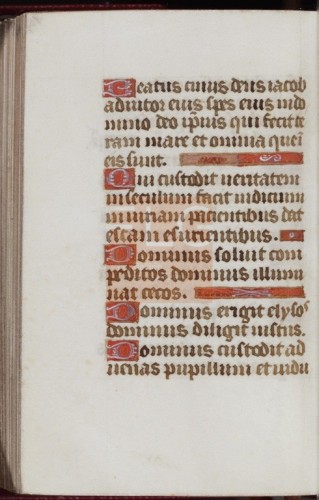 Beatus cuius deus iacob
adiutor eius spes eius in do
mino deo ipsius qui fecit ter
ram mare et omnia que i
eis sunt.
Qui custodit ueritatem
in seculum facit iudicium
iniuriam pacientibus dat
escam esurientibus.
Dominus soluit com
peditos dominus illumi
nat cecos.
Dominus erigit elysos
dominus diligit iustos.
Dominus custodit ad
uenas pupillum et uidu